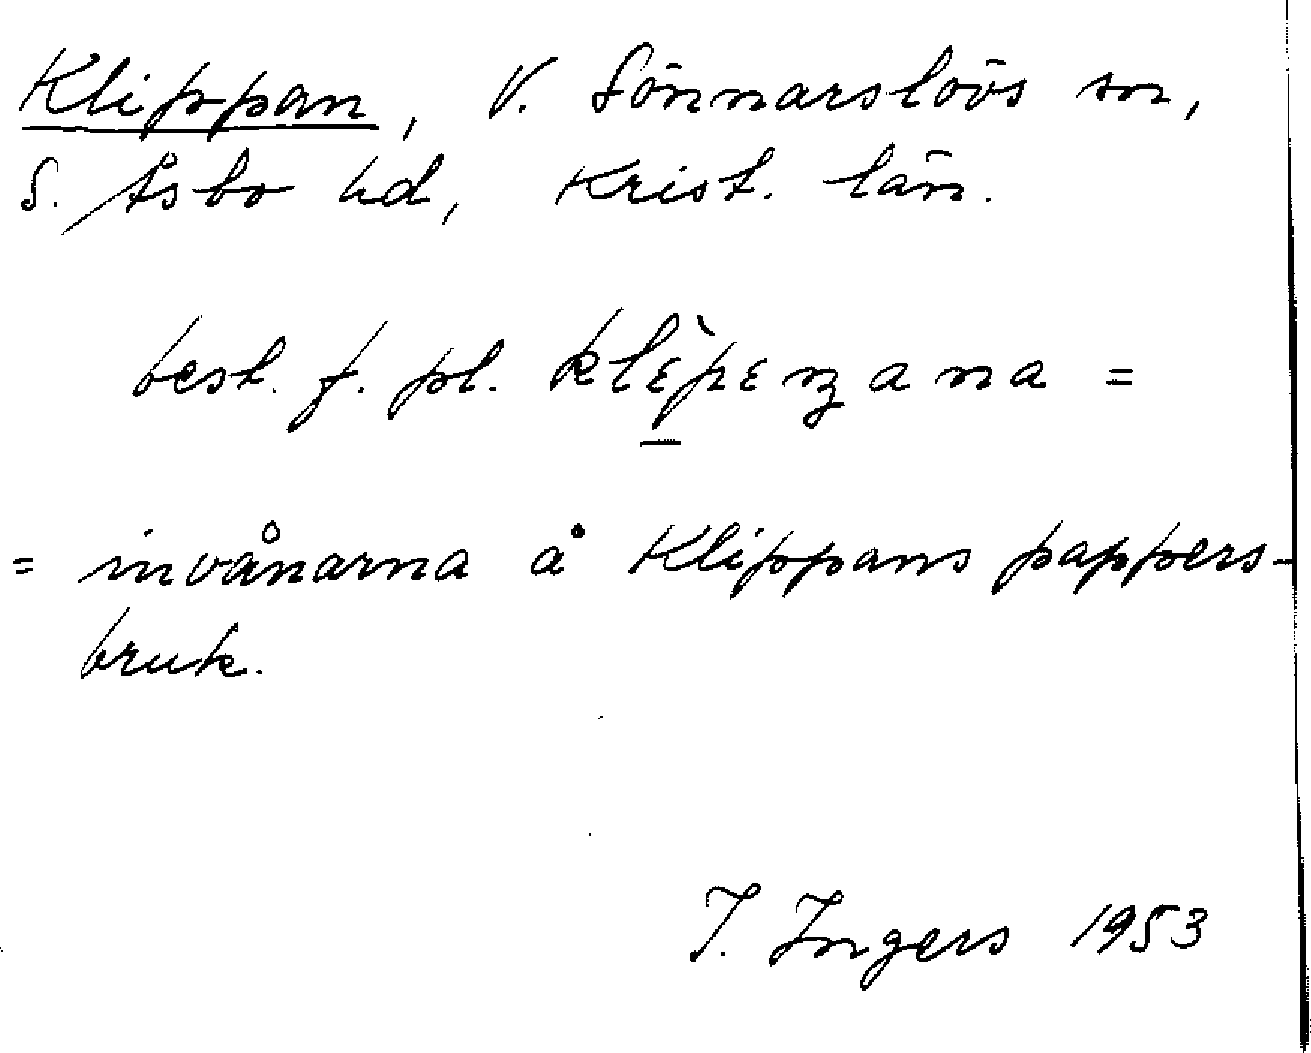 Klippan, V. Sönnarslövs sn,
S. Åsbo hd, Krist. län.
best. f. pl. klɛ̀pɛŋana =
= invånarna å Klippans pappers-
bruk.
I. Ingers 1953